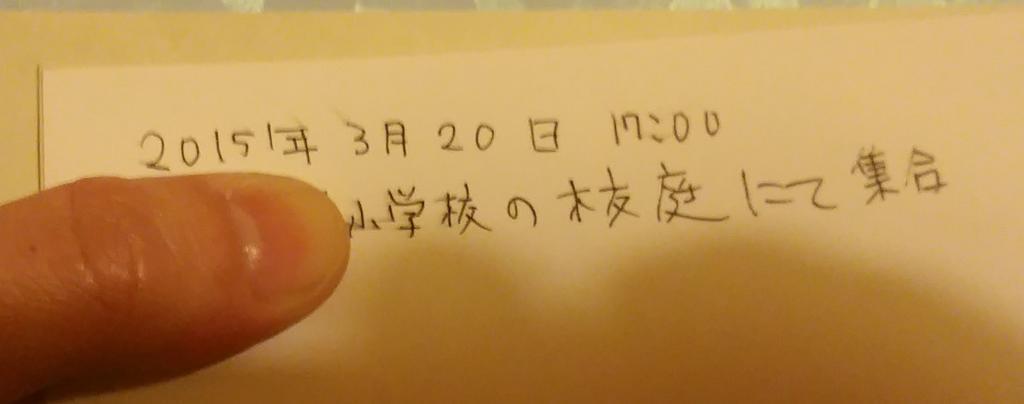 2015年 3月 20 日 17:00
小学校の校庭にて集合